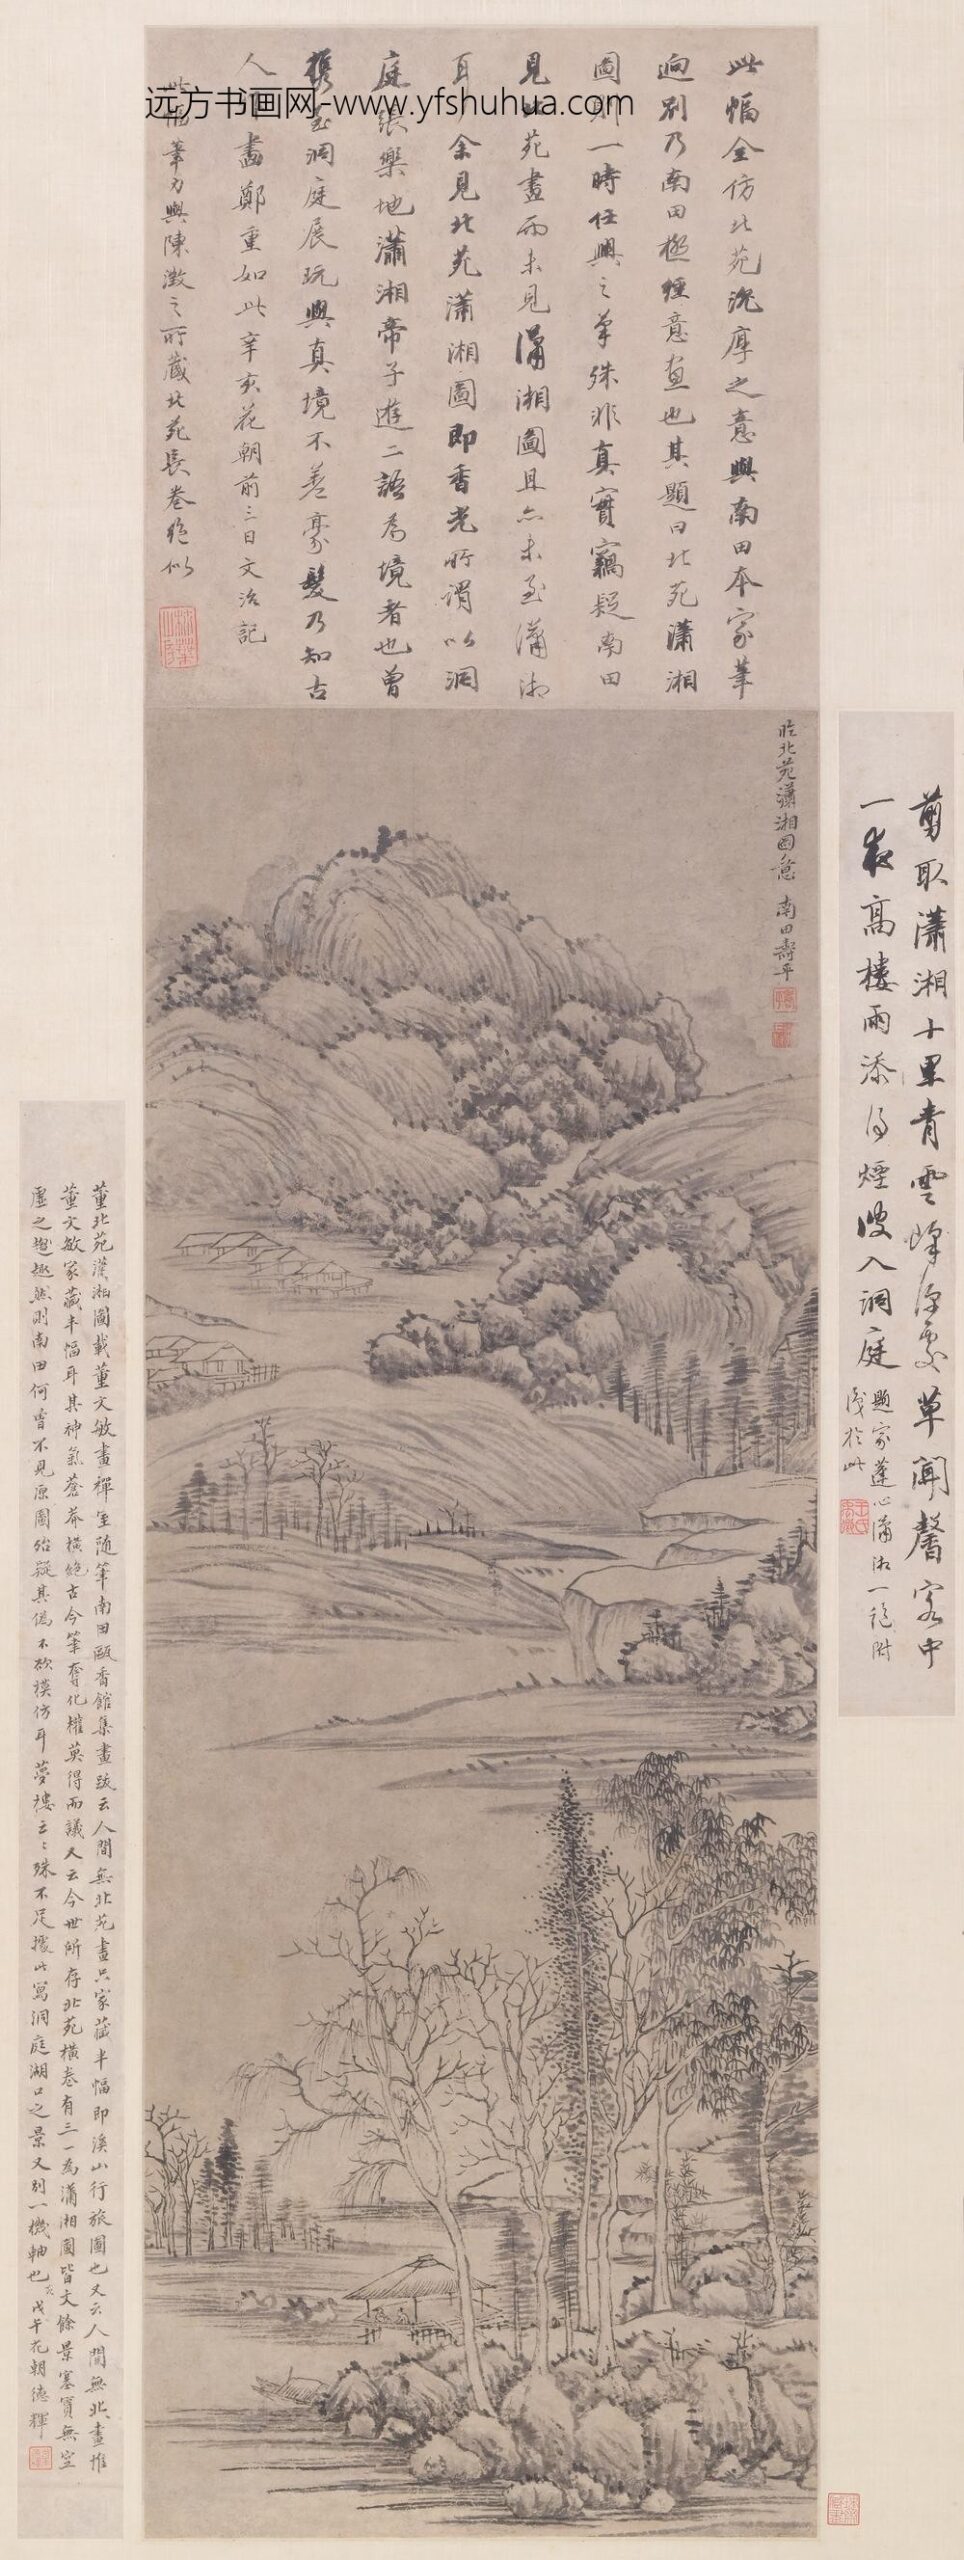 远方书画网-www.yfshuhua.com
此幅全仿北苑沉厚之意與南田本家筆
迥別乃南田極經意画也其題曰北苑瀟湘
圖則一時任興之筆殊非真實竊疑南田
見北苑畫而未見瀟湘圖且亦未至瀟湘
耳余見北苑瀟湘圖即香光所謂以洞
庭張樂地瀟湘帝子遊二語為境者也曾
攜至洞庭展玩與真境不差豪髮乃知古
人畫鄭重如此辛亥花朝前三日文治記
此幅筆力與陳澂之所藏北苑長卷絶似
臨北苑瀟湘圖意 南田壽平
剪取瀟湘十里青雲峰深處草聞馨客中
一夜高樓雨添得煙波入洞庭
題家蓬心瀟湘一絕附
識於此
董北苑瀟湘圖載董文敏畫禪室隨筆南田甌香館集畫跋云人間無北苑畫只家藏半幅即溪山行旅圖也又云人間無北畫惟
董文敏家藏半幅耳其神氣蒼莽橫絶古今筆奪化權莫得而議又云今世所存北苑橫卷有三一為瀟湘圖皆丈餘景塞實無空
虛之趣然則南田何曾不見原圖殆疑其偽不欲摸仿耳夢樓云云殊不足據此寫洞庭湖口之景又別一機軸也 戊午花朝德輝